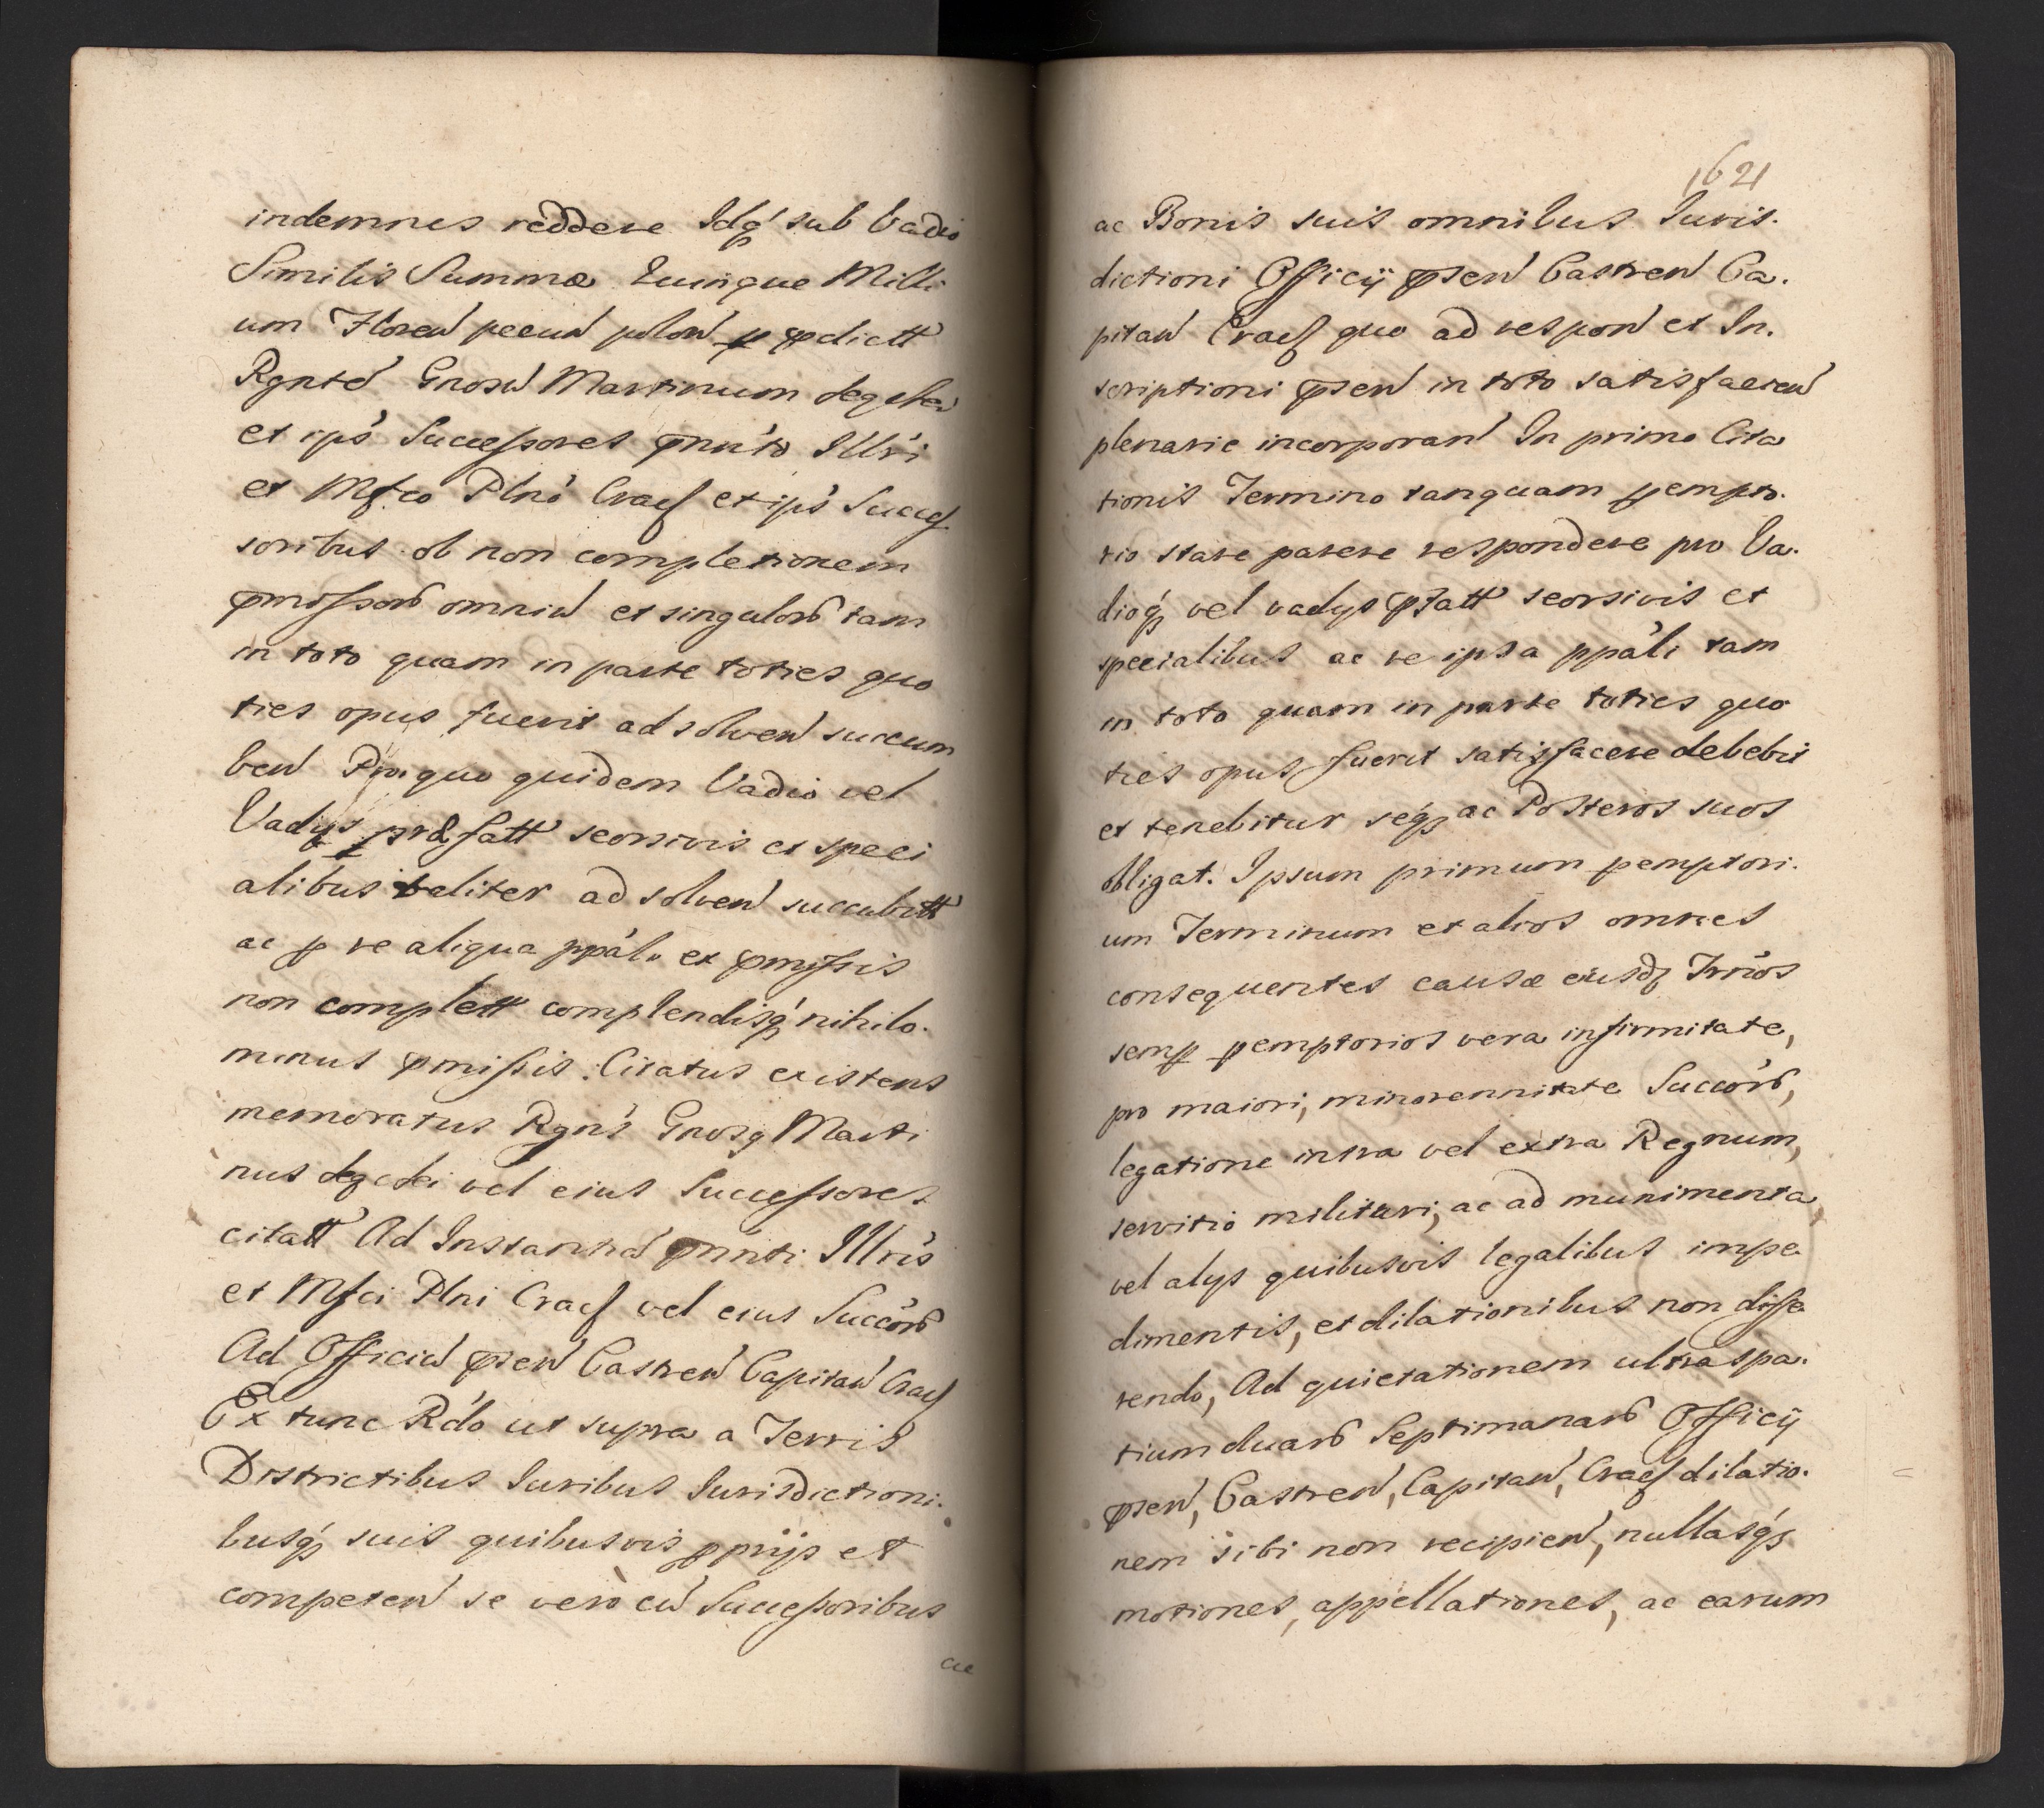 indemnes reddere Idq́ sub Vadio
Similis Summæ Quinque Milli
um Floren̄ pecun̄ polon̄ p prdictt
Rgntē Gnosū Martinum
et ips̄ Successores pnńto Illr̄i
et Mfco Plnó Cracȷ et ips̄ Succes
soribus ob non completionem
pmissorū omniū et singulorū tam
in toto quam in parte toties quo
ties opus fuerit ad solven̄ succum
ben̄ Pro quo quidem Vadio vel
Vadys præfatt seorsivis et speci
alibus taliter ad solven̄ succubitt
ac p re aliqua ppáli ex pmissis
non complett complendisq́ nihilo.
minus pmissis. Citatus existens
memoratus Rgnś Gnosq Marti
nus vel eius Successores
citatt Ad Instantiā pnńti Illrís
et Mfci Plni Cracȷ vel eius Succorū
Ad Officiū psen̄ Castren̄ Capitan̄ Cracȷ
Ex tunc Rdó ut supra a Terris
Districtibus Iuribus Iurisdictioni.
busq́ suis quibusvis pprijs et
competen̄ se vero cū Successoribus
ac
1621
ac Bonis suis omnibus Iuris.
dictioni Officÿ psen̄ Castren̄ Ca.
pitan̄ Cracȷ quo ad respon̄ et In.
scriptioni psen̄ in toto satisfacien̄
plenarie incorporan̄ In primo Cita
tionis Termino tanquam pempto.
rio stare parere respondere pro Va.
dioq́ vel vadys pfatt seorsivis et
specialibus ac re ipsa ppáli tam
in toto quam in parte toties quo
ties opus fuerit satisfacere debebit
et tenebitur séq ac Posteros suos
obligat. Ipsum primum pemptori.
um Terminum et alios omnes
consequentes causæ eiusdȷ Trńos
semp pemptorios vera infirmitate,
pro maiori, minorennitate Succorū,
legatione intra vel extra Regnum,
servitio militari, ac ad munimenta,
vel alys quibusvis legalibus impe
dimentis, et dilationibus non diffe
rendo, Ad quietationem ultra spa.
tium duarū Septimanarū Officÿ
psen̄, Castren̄, Capitan̄, Cracȷ dilatio.
nem sibi non recipien̄, nullasq́
motiones, appellationes, ac earum